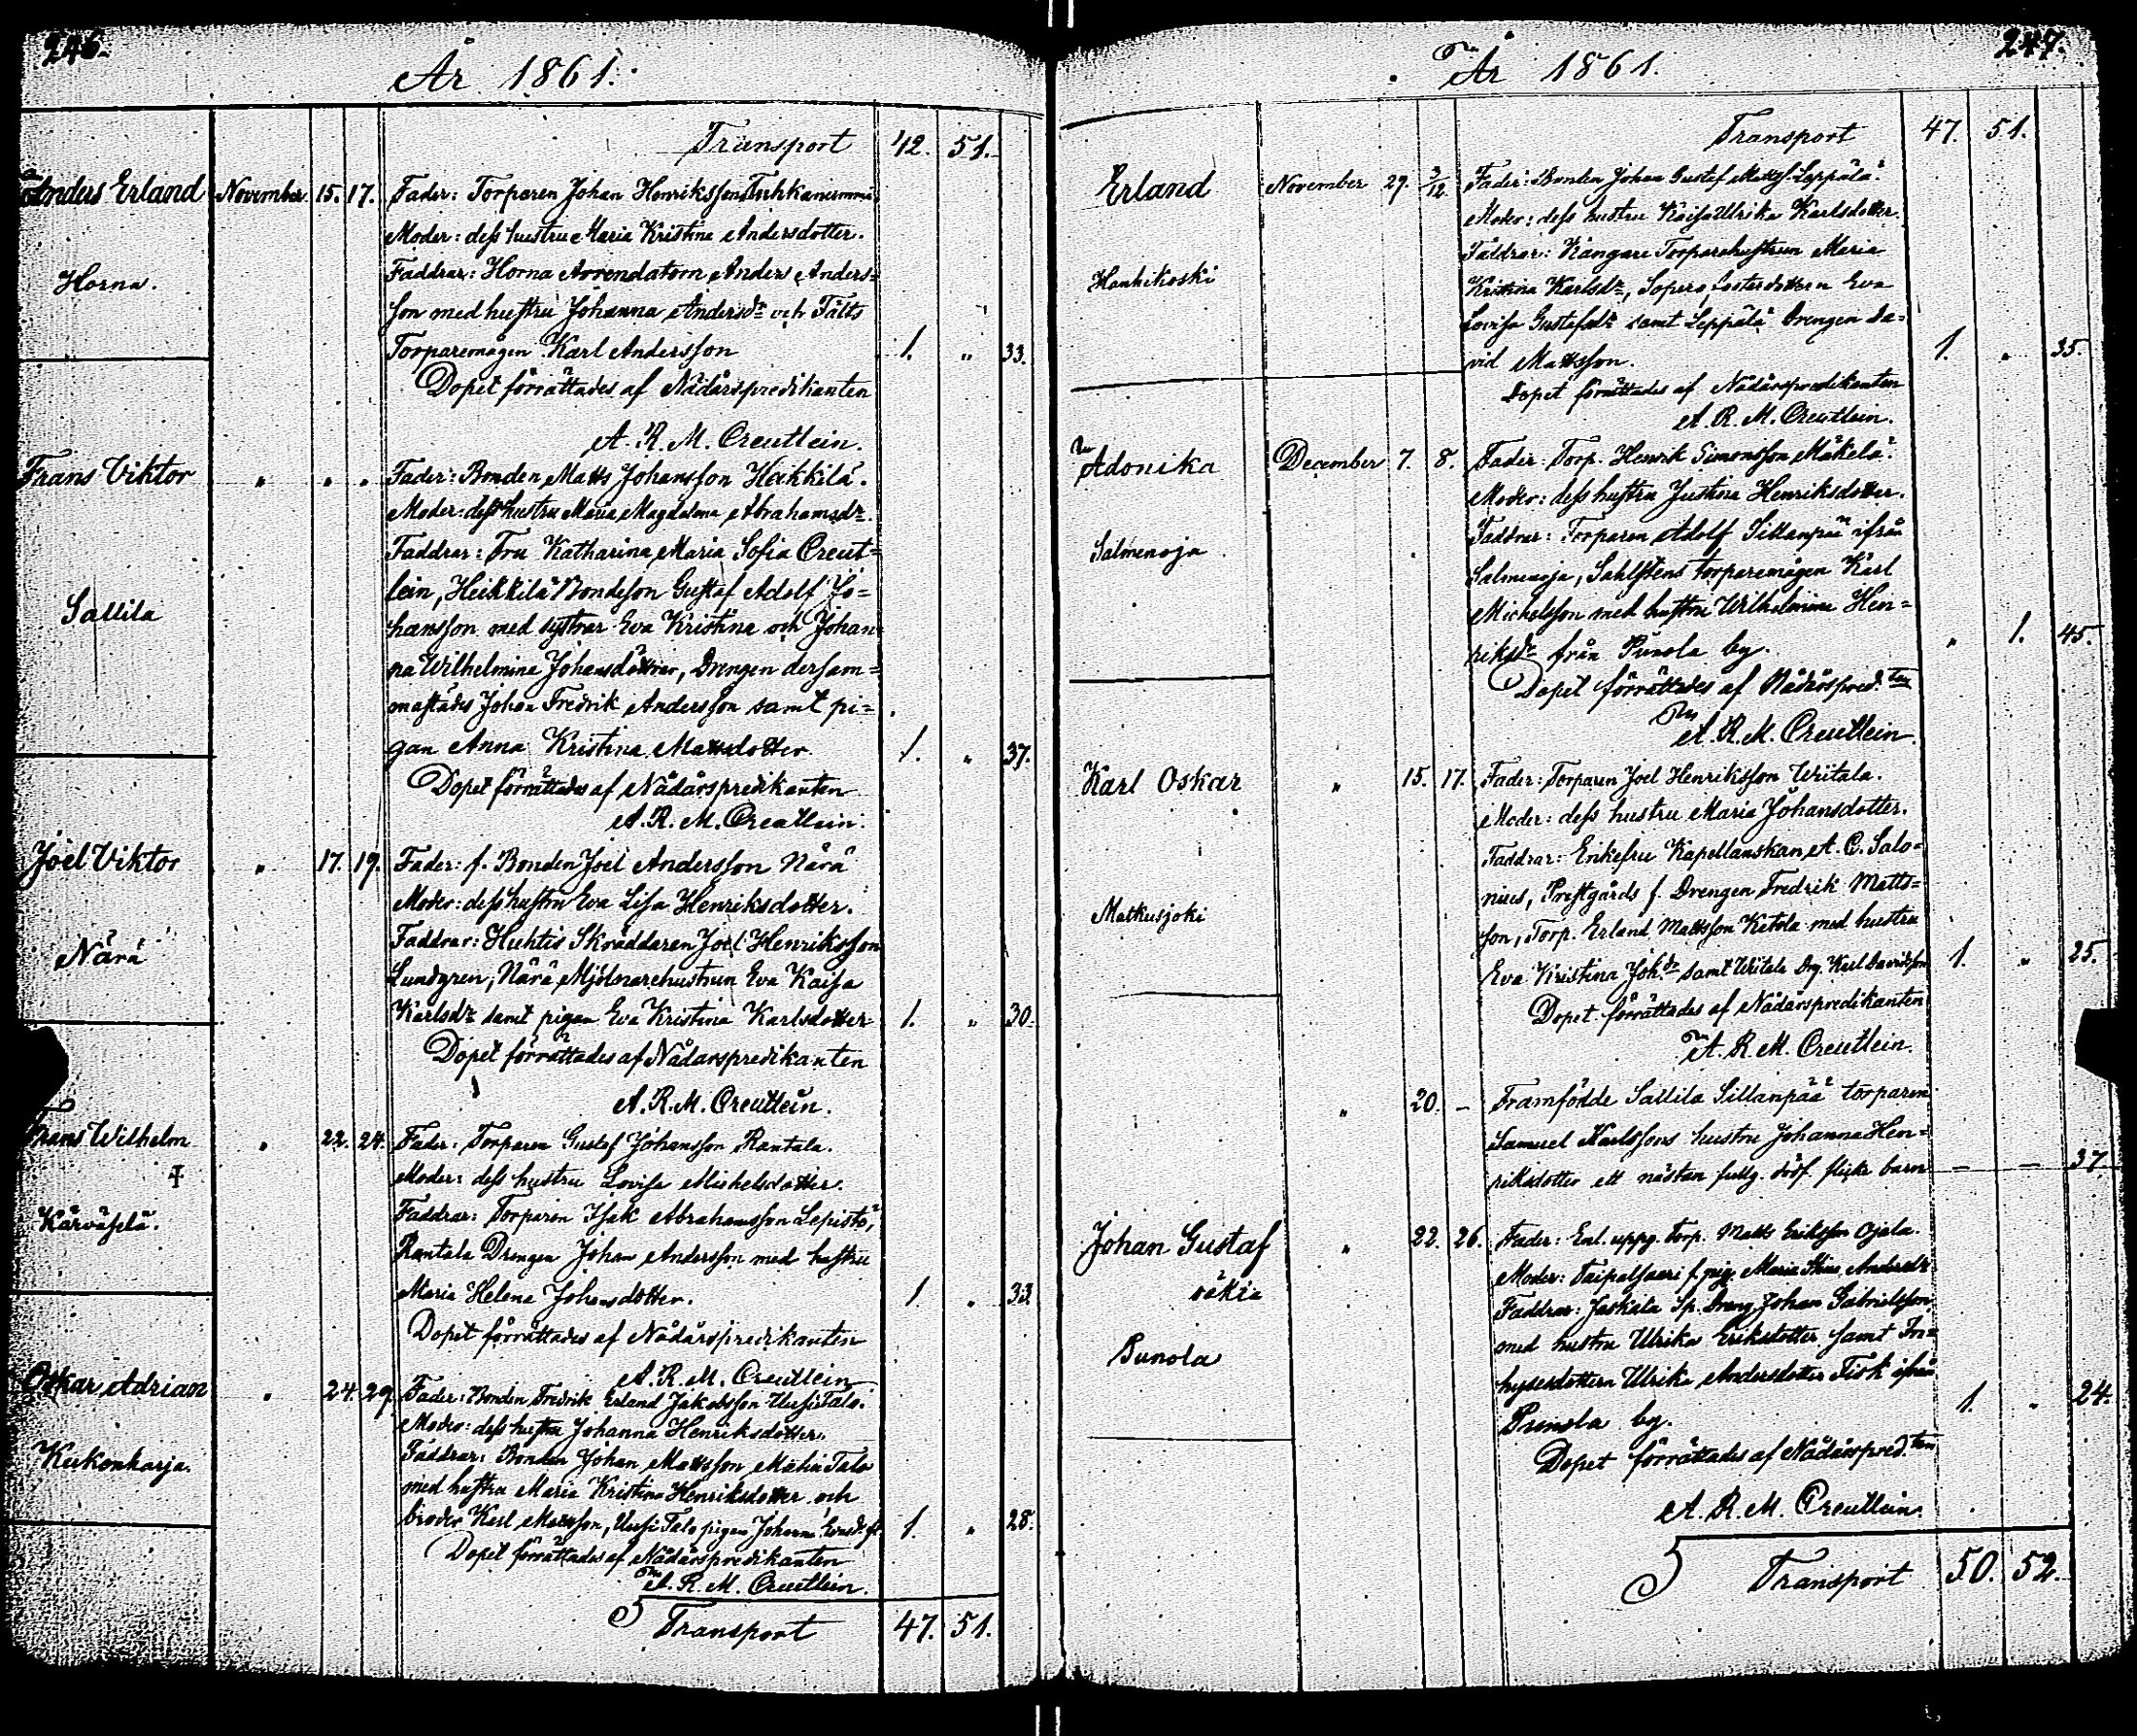 246.
År 1861.
Transport 42. 51.
Anders Erland November 15. 17. Fader: Torparen Johan Henriksson
Moder: dess hustru Maria Kristina Andersdotter.
Faddrar: Horna Arrendatorn Anders Anders=
Horna.
son med hustru Johanna Andersdr och Fälts
Torparemågen Karl Andersson 1. " 33.
Dopet förrättades af Nådårspredikanten
A. R. M. Creutlein.
Frans Viktor " " " Fader: Bonden Matts Johansson Heikkilä.
Moder: dess hustru Maria Magdalena Abrahamsdr.
Faddrar: Fru Katharina Maria Sofia Creut=
lein, Heikkilä Bondeson Gustaf Adolf Jo=
Sallila
hansson med systrar Eva Kristina och Johan=
na Wilhelmina Johansdöttrar, Drengen dersam=
mastädes Johan Fredrik Andersson samt pi=
gan Anna Kristina Mattsdotter 1. " 37.
Dopet förrättades af Nådårspredikanten
A. R. M. Creutlein.
Joel Viktor " 17. 19. Fader: f. Bonden Joel Andersson Närä
Moder: dess hustru Eva Lisa Henriksdotter.
Faddrar: Huhtis Skräddaren Joel Henriksson
Närä
Lundgren, Närä Mjölnarehustrun Eva Kaisa
Karlsdr samt pigan Eva Kristina Karlsdotter 1. " 30.
Dopet förrättades af Nådårspredikanten
A. R. M. Creutlein.
Frans Wilhelm " 22. 24. Fader: Torparen Gustaf Johansson Rantala.
Moder: dess hustru Lovisa Michelsdotter.
Kärväselä.
Faddrar: Torparen Isak Abrahamsson Lepistö,
Rantala Drengen Johan Andersson med hustru
Maria Helena Johansdotter. 1. " 33.
Dopet förrättades af Nådårspredikanten
A. R. M. Creutlein
Oskar Adrian " 24. 29. Fader: Bonden Fredrik Erland Jakobsson Uusi Talo.
Moder: dess hustru Johanna Henriksdotter.
Keikonharja.
Faddrar: Bonden Johan Mattsson Talo
med hustru Maria Kristina Henriksdotter och
broder Karl Mattsson, Uusi Talo pigan Johanna 1. " 28.
Dopet förrättades af Nådårspredikanten
A. R. M. Creutlein.
Transport 47. 51.
247.
År 1861.
Transport 47. 51.
Erland November 29. 3/12 Fader: Bonden Johan Gustaf Mattss. Leppälä.
Moder: dess hustru Kaisa Ulrika Karlsdotter.
Faddrar: Kangare Torparehustrun Maria
Hanhikoski
Kristina Karlsdr, Sopero Lostesdottern Eva
Lovisa Gustafsdr samt Leppälä Drengen Da=
vid Mattsson. 1. " 35.
Dopet förrättades af Nådårspredikanten
A. R. M. Creutlein.
Adonika December 7. 8. Fader: Torp. Henrik Simonsson Mäkelä.
Moder: dess hustru Justina Henriksdotter.
Faddrar: Torparen Adolf Sillanpää ifrån
Salmenoja
Salmenoja, Sahlstens torparemågen Karl
Michelsson med hustru Wilhelmina Hen=
riksdr från Punola by. " 1. 45.
Dopet förrättades af Nådårspred.ten
A. R. M. Creutlein.
Karl Oskar " 15. 17. Fader: Torparen Joel Henriksson Wiitala.
Moder: dess hustru Maria Johansdotter.
Faddrar: Enkefru Kapellanskan A. C. Salo=
nius, Prestgårds f. Drengen Fredrik Matts=
Matkusjoki
son, Torp. Erland Mattsson Ketola med hustru
Eva Kristina Joh.dr samt Wiitala Drg. Karl Davidsson 1. " 25.
Dopet förrättades af Nådårspredikanten
A. R. M. Creutlein.
" 20. – Framfödde Sallila Sillanpää torparen
Samuel Karlssons hustru Johanna Hen=
riksdotter ett nästan fullg. dödf. flicke barn – – 37
Johan Gustaf " 22. 26. Fader: Enl. uppg. torp. Matts Eriksson Ojala.
oäkta
Moder: Taipalsaari f. pig. Maria Stina Andersdr
Faddrar: Jaskala Sp. Dreng Johan Gabrielsson
Punola
med hustru Ulrika Eriksdotter samt In=
hysesdottern Ulrika Andersdotter Fisk ifrån
Punola by. 1. " 24.
Dopet förrättades af Nådårspred.ten
A. R. M. Creutlein.
Transport 50. 52.